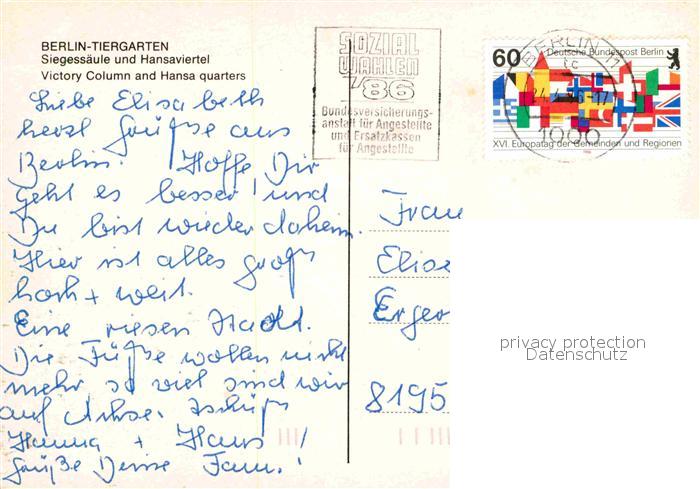 BERLIN-TIERGARTEN
Siegessäule und Hansaviertel
Victory Column and Hansa quarters
Liebe Elisabeth
herzl Grüße aus
Berlin. Hoffe Dir
geht es besser und
Du bist wieder daheim.
Hier ist alles groß
hoch + weit.
Eine riesen Stadt.
Die Füße wollen nicht
mehr so viel sind wir
auf Achse. Tschüß
Hanna + Hans !
Grüße Deine Fam.!
SOZIAL
WAHLEN
'86
Bundesversicherungs-
anstalt für Angestellte
und Ersatzkassen
für Angestellte
60
Deutsche Bundespost Berlin
XVI. Europatag der Gemeinden und Regionen
BERLIN 11
1000
Frau
Elise
Erger
8195
privacy protection
Datenschutz